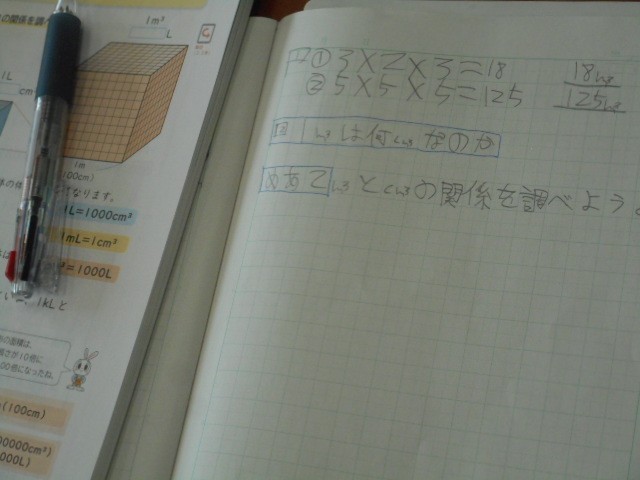 の関係を調べ
1m³
L
1L
cm
1m
100cm)
なります。
1L=1000cm³
1mL=1cm³
=1000L
1kLと
の面積は、
長さが10倍に
00倍になったね。
(100cm)
00000cm³)
000L)
① 3×2×3=18 18m³
② 5×5×5=125 125m³
問 1m³は何cm³なのか
めあて m³とcm³の関係を調べよう。